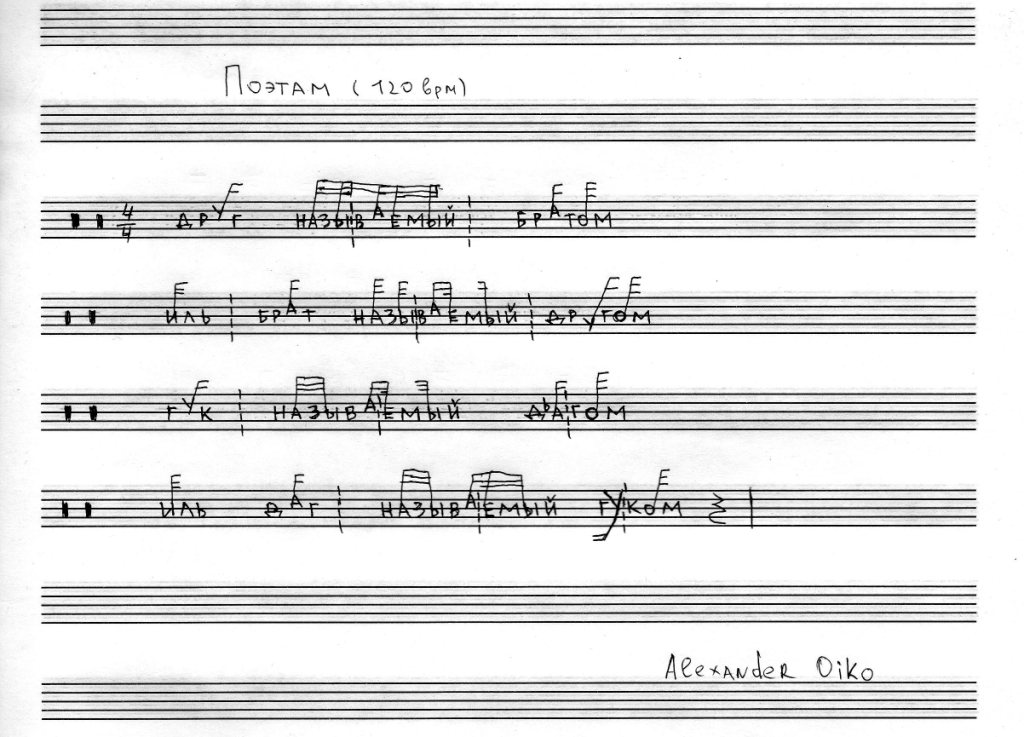 Поэтам (120 bpm)
4/4 друг называемый братом
иль брат называемый другом
гук называемый дьагом
иль даг называемый гуком
Alexander Oiko